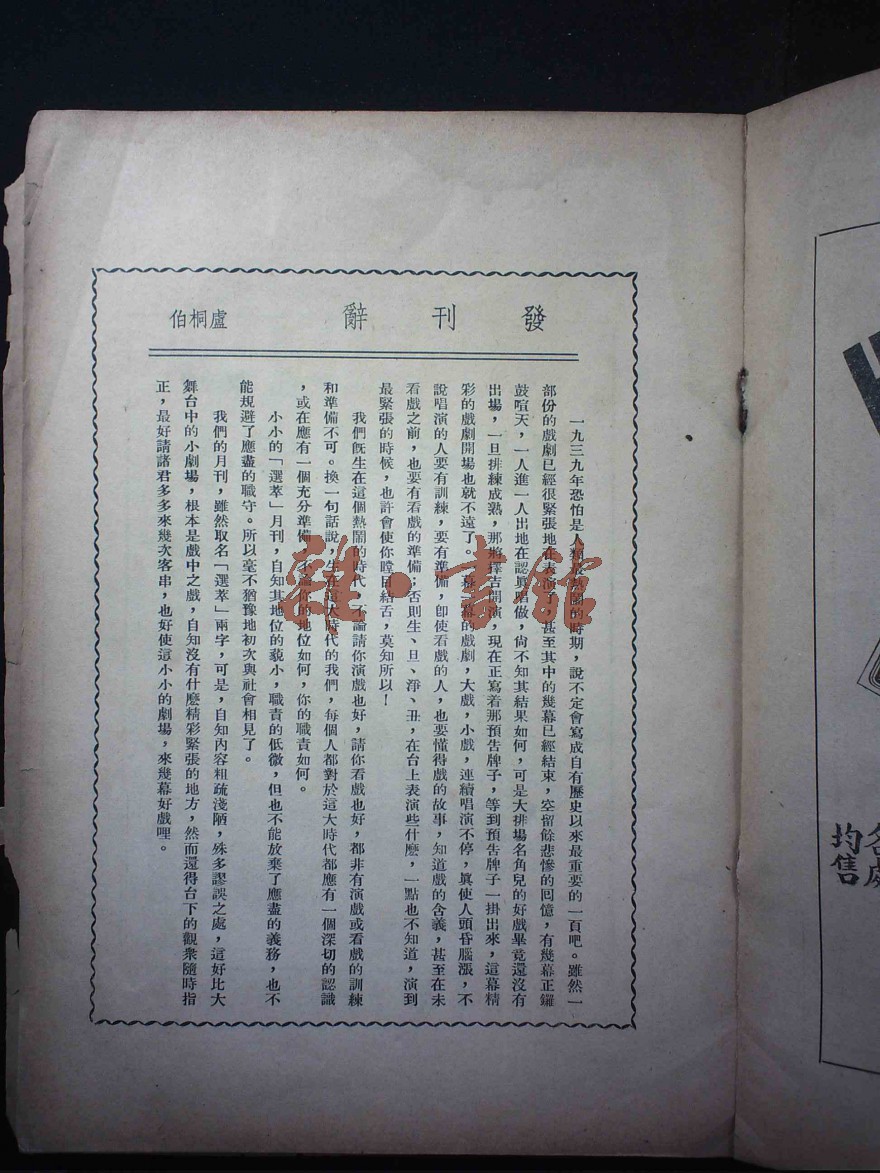 發刊辭
盧桐伯
一九三九年恐怕是人類最熱鬧的時期，說不定會寫成自有歷史以來最重要的一頁吧。雖然一
部份的戲劇已經很緊張地在表演了，甚至其中的幾幕已經結束，空留餘悲慘的回憶，有幾幕正鑼
鼓喧天，一人進一人出地在認眞唱做，尙不知其結果如何，可是大排場名角兒的好戲畢竟還沒有
出場，一旦排練成熟，那將擇吉開演，現在正寫着那預告牌子，等到預告牌子一掛出來，這幕精
彩的戲劇開場也就不遠了。一幕一幕的戲劇，大戲，小戲，連續唱演不停，眞使人頭昏腦漲，不
說唱演的人要有訓練，要有準備，卽使看戲的人，也要懂得戲的故事，知道戲的含義，甚至在未
看戲之前，也要有看戲的準備；否則生、旦、淨、丑，在台上表演些什麽，一點也不知道，演到
最緊張的時候，也許會使你瞠目結舌，莫知所以！
我們旣生在這個熱鬧的時代，不論請你演戲也好，請你看戲也好，都非有演戲或看戲的訓練
和準備不可。換一句話說，生在這大時代的我們，每個人都對於這大時代都應有一個深切的認識
，或在應有一個充分準備，不論你的地位如何，你的職責如何。
小小的「選萃」月刊，自知其地位的藐小，職責的低微，但也不能放棄了應盡的義務，也不
能規避了應盡的職守。所以毫不猶豫地初次與社會相見了。
我們的月刊，雖然取名「選萃」兩字，可是，自知內容粗疏淺陋，殊多謬誤之處，這好比大
舞台中的小劇場，根本是戲中之戲，自知沒有什麽精彩緊張的地方，然而還得台下的觀衆隨時指
正，最好請諸君多多來幾次客串，也好使這小小的劇場，來幾幕好戲哩。
雜·書館
各處
均售